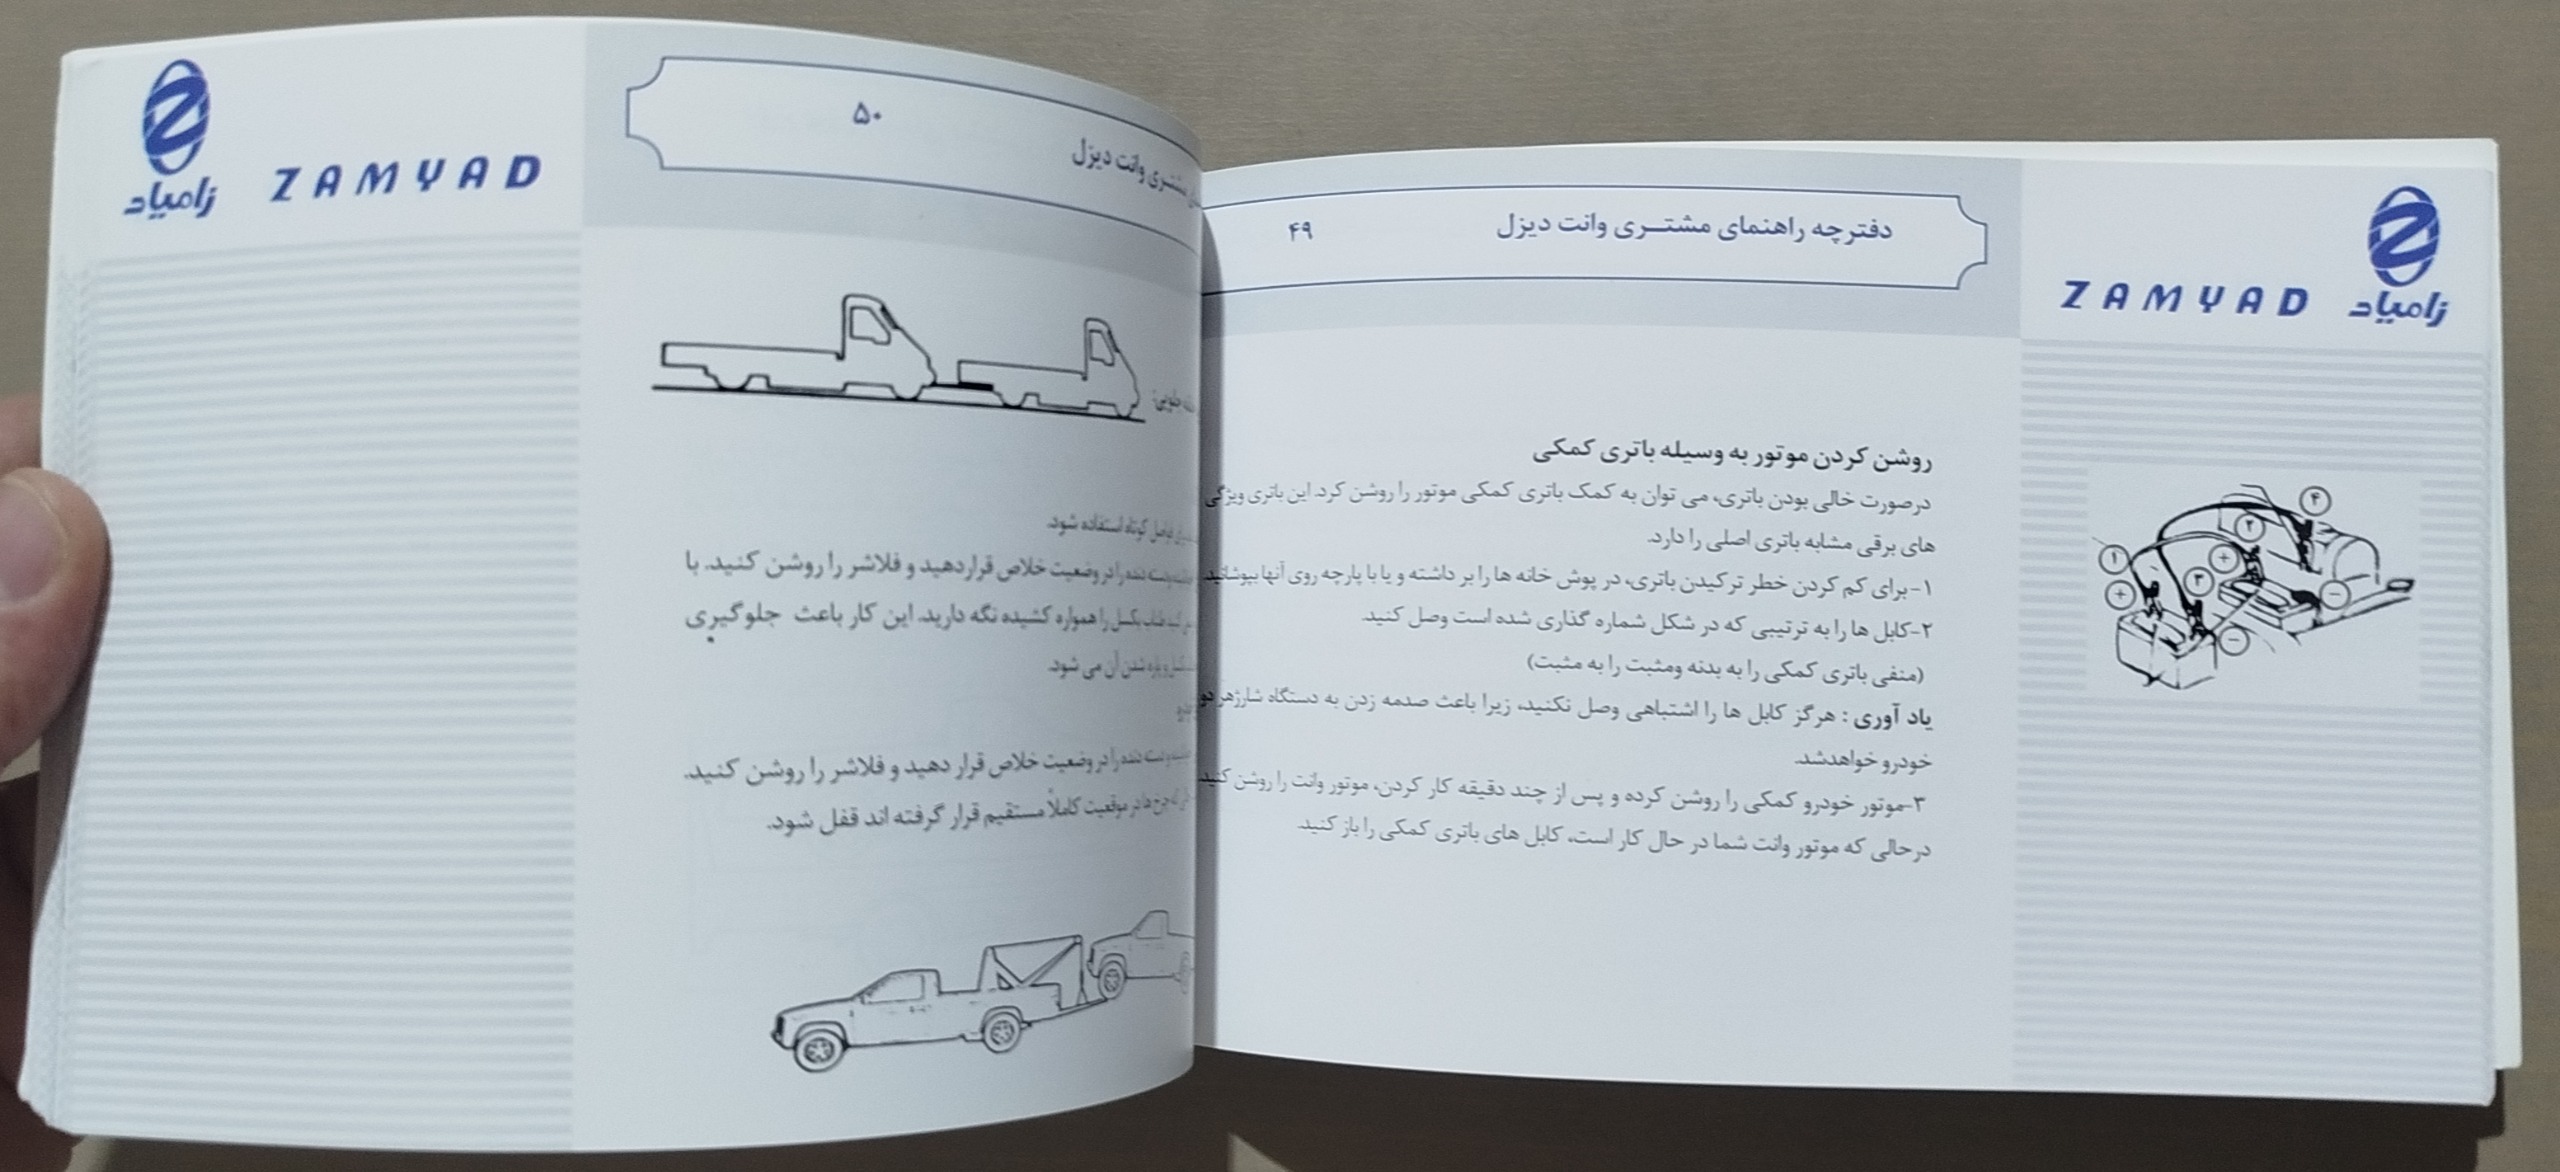 زامیاد
ZAMYAD
دفترچه راهنمای مشتــری وانت دیزل
۴۹
روشن کردن موتور به وسیله باتری کمکی
درصورت خالی بودن باتری، می توان به کمک باتری کمکی موتور را روشن کرد. این باتری ویژگی
های برقی مشابه باتری اصلی را دارد.
۱-برای کم کردن خطر ترکیدن باتری، در پوش خانه ها را بر داشته و یا با پارچه روی آنها بپوشانید.
۲-کابل ها را به ترتیبی که در شکل شماره گذاری شده است وصل کنید.
(منفی باتری کمکی را به بدنه ومثبت را به مثبت)
یاد آوری : هرگز کابل ها را اشتباهی وصل نکنید، زیرا باعث صدمه زدن به دستگاه شارژهر دو
خودرو خواهدشد.
۳-موتور خودرو کمکی را روشن کرده و پس از چند دقیقه کار کردن، موتور وانت را روشن کنید.
درحالی که موتور وانت شما در حال کار است، کابل های باتری کمکی را باز کنید.
۴
۲
۱
+
۳
+
−
−
۵۰
مشتــری وانت دیزل
زامیاد
ZAMYAD
جلویی:
فواصل کوتاه استفاده شود.
دسته دنده را در وضعیت خلاص قراردهید و فلاشر را روشن کنید. با
طناب بکسل را همواره کشیده نگه دارید. این کار باعث جلوگیری
پاره شدن آن می شود.
دسته دنده را در وضعیت خلاص قرار دهید و فلاشر را روشن کنید.
که چرخ ها در موقعیت کاملاً مستقیم قرار گرفته اند قفل شود.